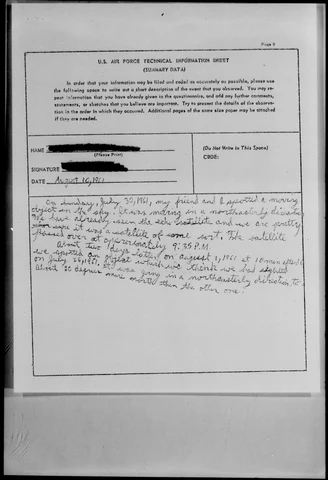 Page 8
U.S. AIR FORCE TECHNICAL INFORMATION SHEET
(SUMMARY DATA)
In order that your information may be filed and coded as accurately as possible, please use
the following space to write out a short description of the event that you observed. You may re-
peat information that you have already given in the questionnaire, and add any further comments,
statements, or sketches that you believe are important. Try to present the details of the observa-
tion in the order in which they occurred. Additional pages of the same size paper may be attached
if they are needed.
NAME
(Please Print)
(Do Not Write in This Space)
CODE:
SIGNATURE
DATE August 16, 1961
On Sunday, July 30, 1961, my friend and I spotted a moving
object in the sky. It was moving in a northeasterly direction.
We have already seen the echo satellite and we are pretty
sure it was a satellite of some sort. The satellite
passed over at approximately 9:35 P.M.
About two days later on August 1, 1961 at 10 min after
we spotted an object which we think we had sighted
on July 30, 1961. It was going in a northeasterly direction,
about 20 degrees more north than the other one.